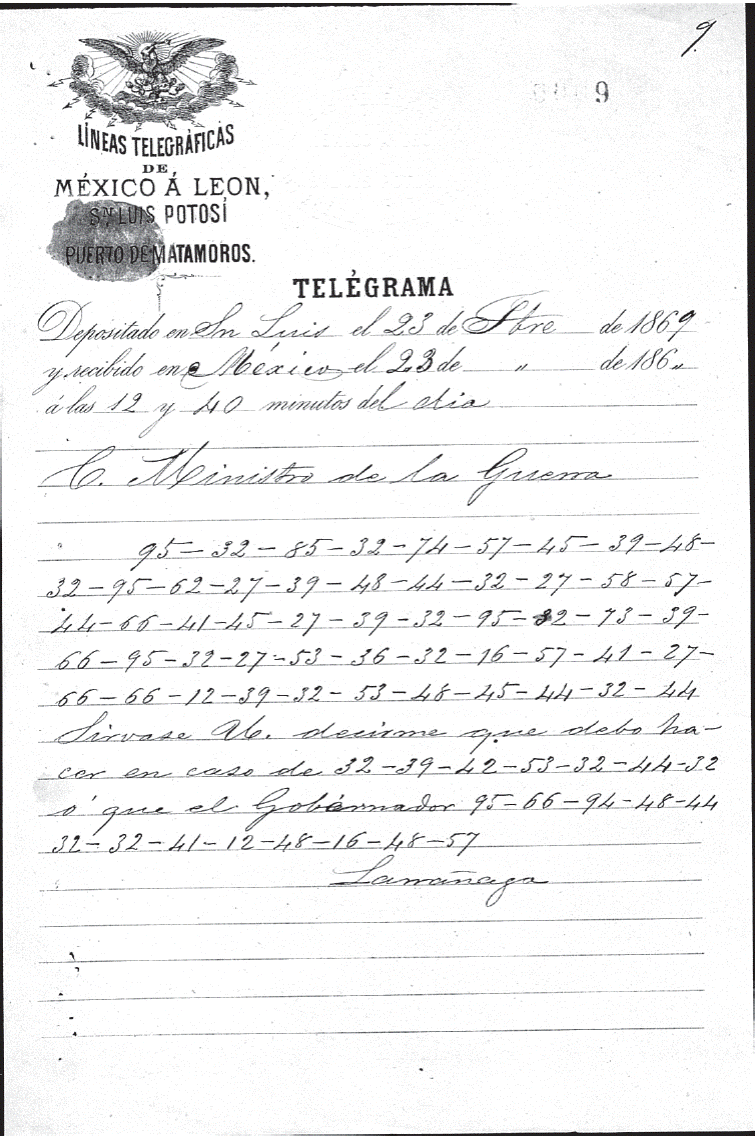 9.
9
LÍNEAS TELEGRÁFICAS
DE
MÉXICO Á LEON,
SN LUIS POTOSÍ
PUERTO DE MATAMOROS.
TELÉGRAMA
Depositado en Sn Luis el 23 de Sbre de 1869
y recibido en México el 23 de " de 186 "
á las 12 y 40 minutos del dia
C. Ministro de la Guerra
95-32-85-32-74-57-45-39-48-
32-95-62-27-39-48-44-32-27-58-57-
44-66-41-45-27-39-32-95-32-73-39-
66-95-32-27-53-36-32-16-57-41-27-
66-66-12-39-32-53-48-45-44-32-44
Sirvase U. decirme que debo ha-
cer en caso de 32-39-42-53-32-44-32
ó que el Gobernador 95-66-94-48-44
32-32-41-12-48-16-48-57
Larrañaga